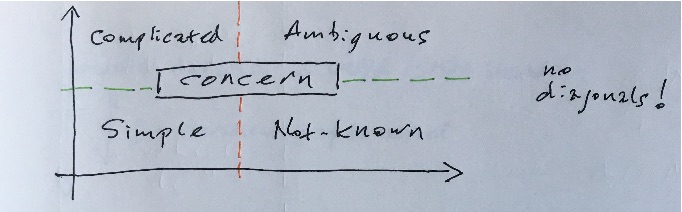 Complicated Ambiguous
concern
no
diagonals!
Simple Not-known